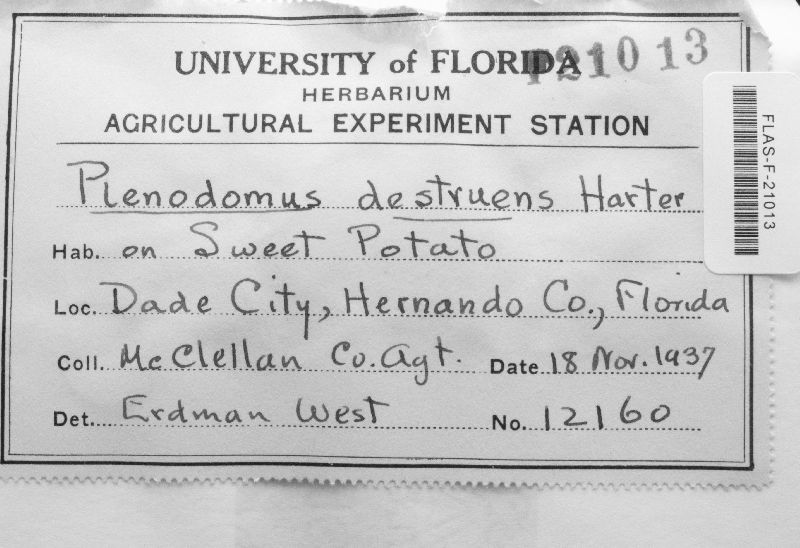 UNIVERSITY of FLORIDA
F21013
HERBARIUM
AGRICULTURAL EXPERIMENT STATION
Plenodomus destruens Harter
Hab. on Sweet Potato
Loc. Dade City, Hernando Co., Florida
Coll. McClellan Co. Agt. Date 18 Nov. 1937
Det. Erdman West No. 12160
FLAS-F-21013